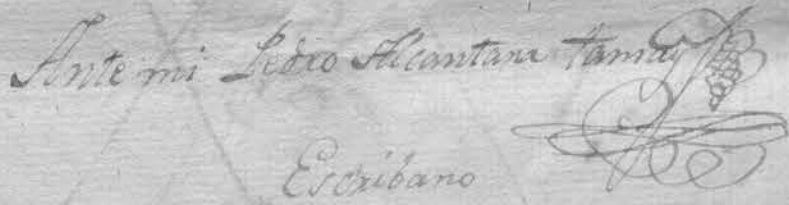 Ante mi Pedro Alcantara Tamay
Escribano